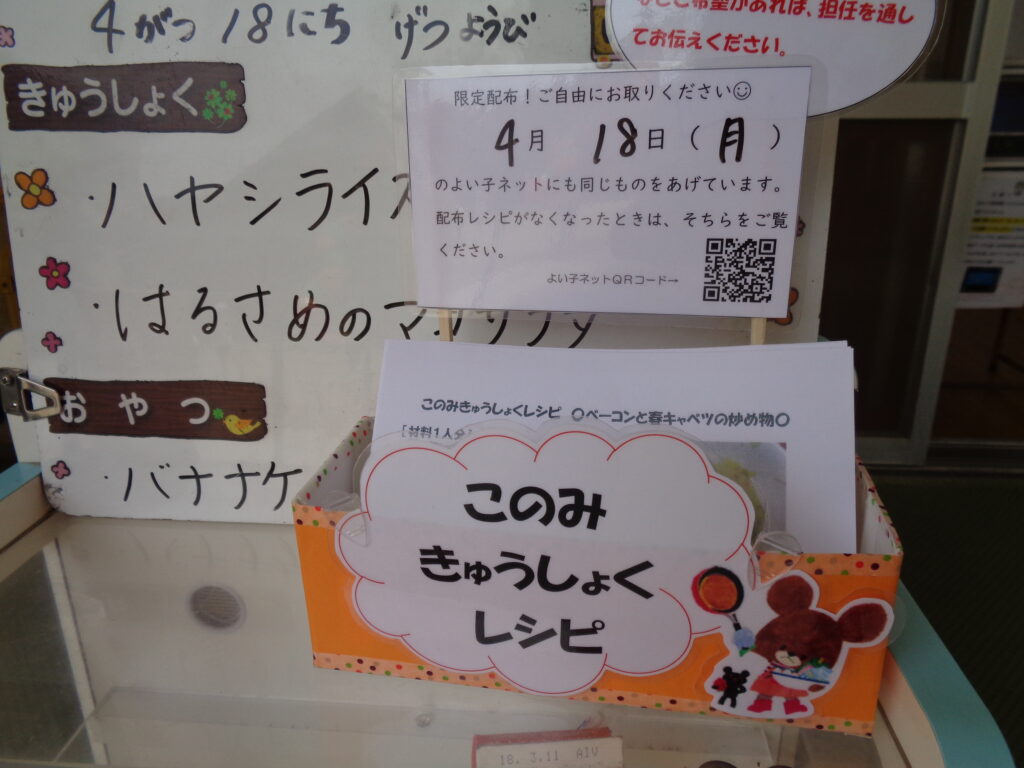 4がつ 18にち げつようび
きゅうしょく
・ハヤシライス
・はるさめのマ
おやつ
・バナナケ
ご希望があれば、担任を通し
てお伝えください。
限定配布！ご自由にお取りください☺
4月 18日（月）
のよい子ネットにも同じものをあげています。
配布レシピがなくなったときは、そちらをご覧
ください。
よい子ネットQRコード→
このみきゅうしょくレシピ 〇ベーコンと春キャベツの炒め物〇
［材料1人分
このみ
きゅうしょく
レシピ
18. 3.11 A1V